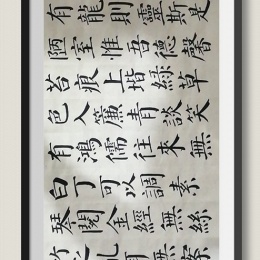 有龍則靈斯是
陋室惟吾德馨
苔痕上堦綠草
色入簾青談笑
有鴻儒往來無
白丁可以調素
琴閱金經無絲
無案